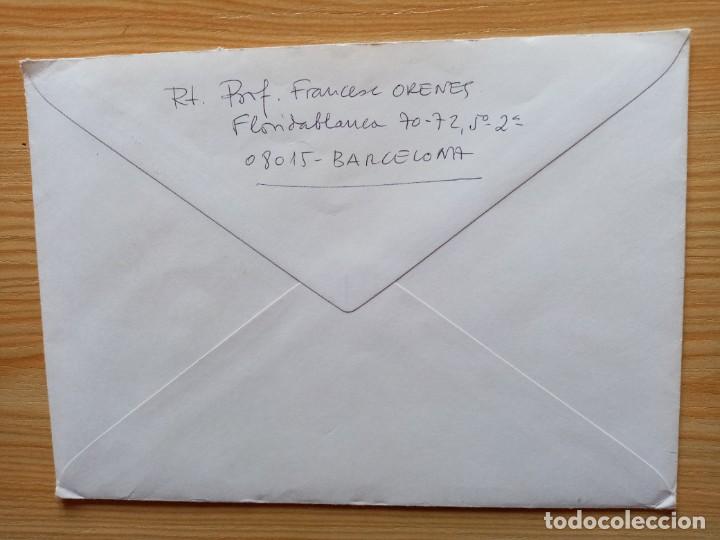 Rt. Prof. Francesc ORENES
Floridablanca 70-72, 5º-2ª
08015-BARCELONA
todocoleccion
todocoleccion.net